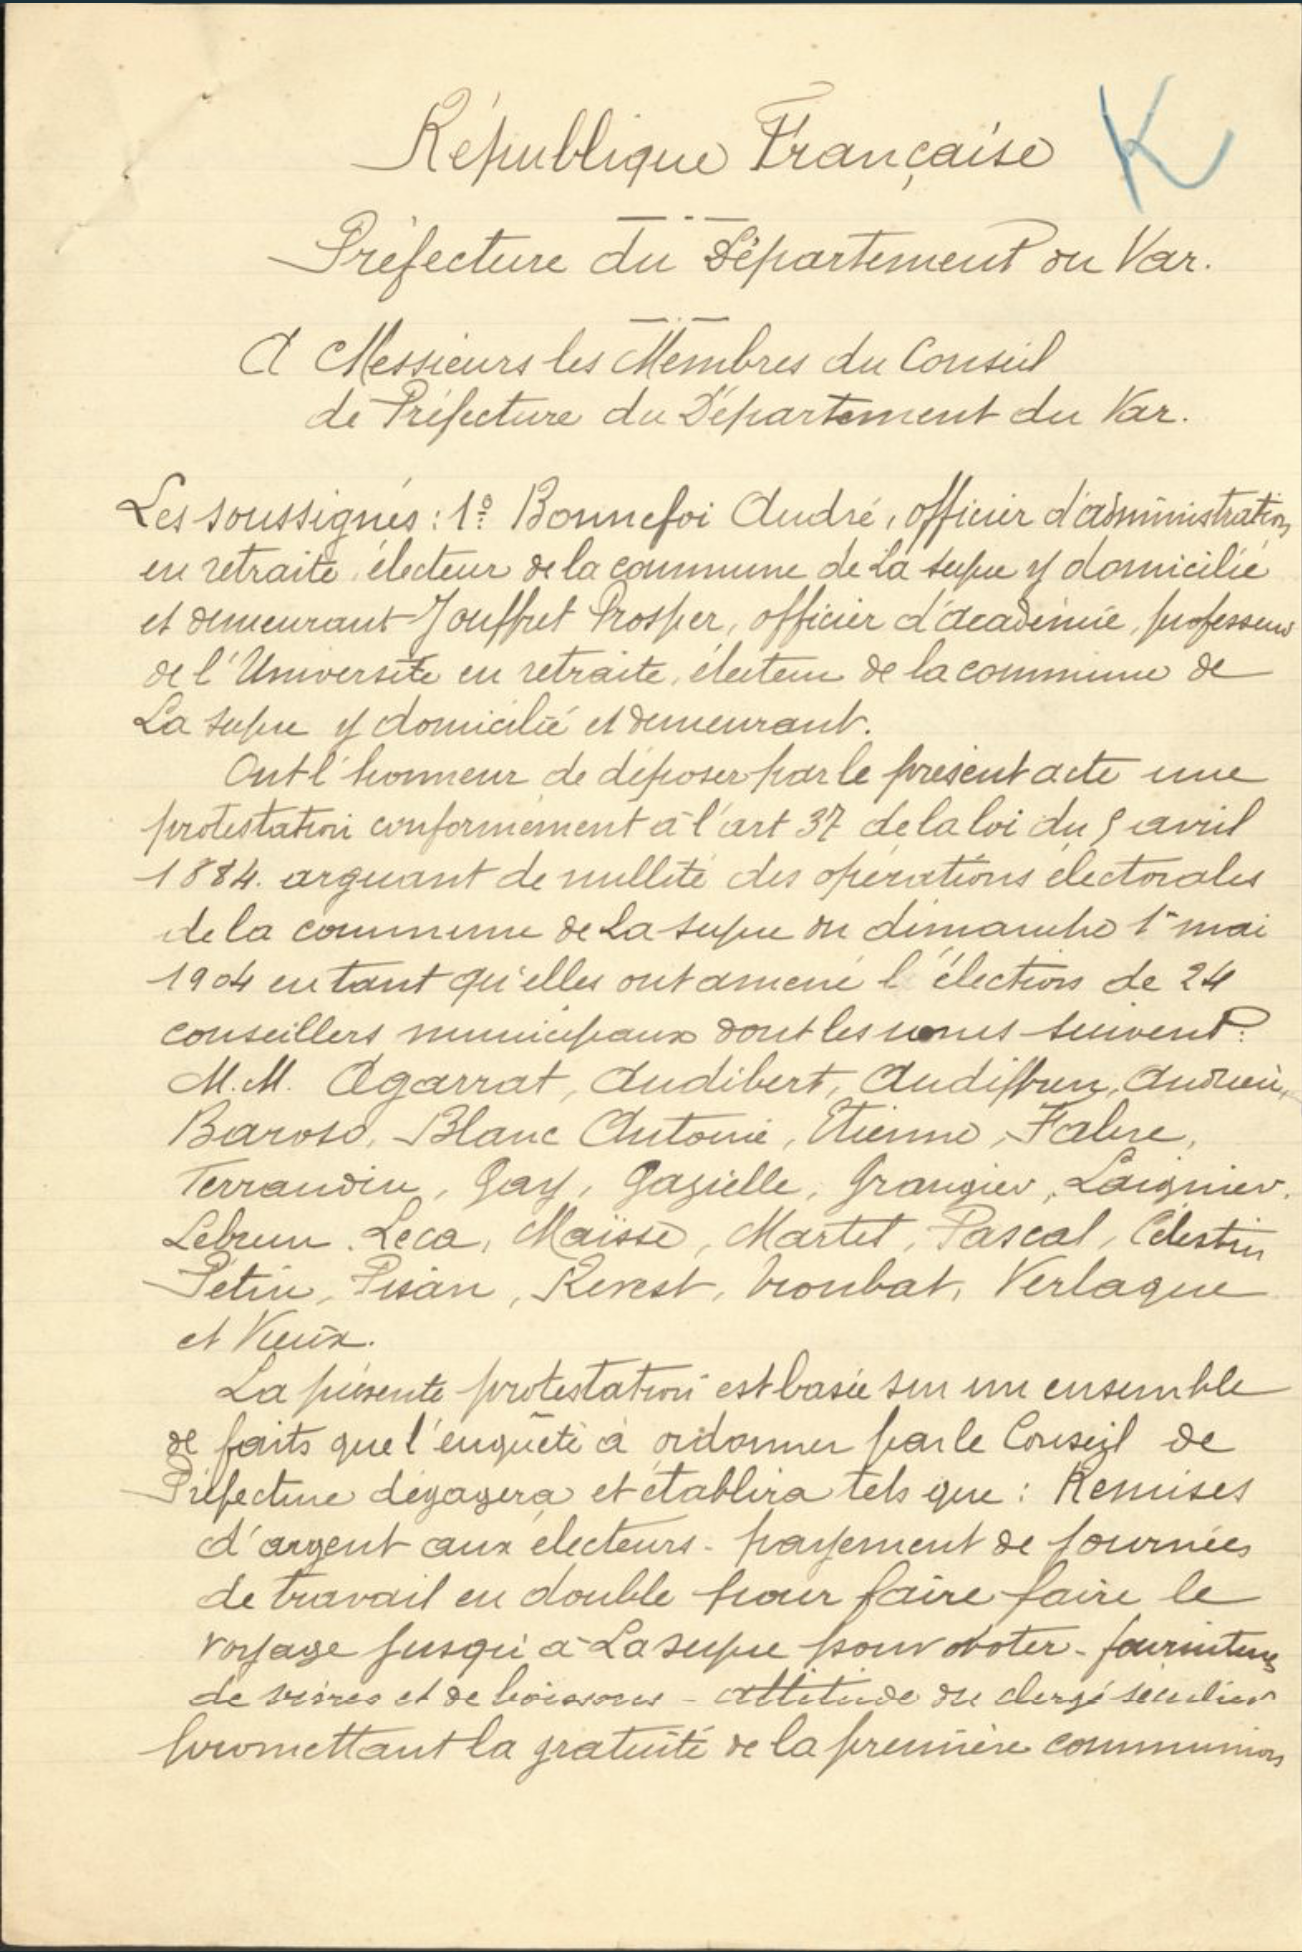 K
République Française
Préfecture du Département du Var.
A Messieurs les Membres du Conseil
de Préfecture du Département du Var.
Les soussignés : 1º Bonnefoi André, officier d'administration
en retraite, électeur de la commune de La Seyne y domicilié
et demeurant Jouffret Prosper, officier d'académie, professeur
de l'Université en retraite, électeur de la commune de
La Seyne y domicilié et demeurant.
Ont l'honneur de déposer par le présent acte une
protestation conformément à l'art 37 de la loi du 5 avril
1884. arguant de nullité des opérations électorales
de la commune de La Seyne du dimanche 1er mai
1904 en tant qu'elles ont amené l'élection de 24
conseillers municipaux dont les noms suivent :
M.M. Agarrat, Audibert, Audiffren, Andrieu,
Baroso, Blanc Antoine, Etienne, Fabre,
Ferrandin, Gay, Gazielle, Grangier, Laignier.
Lebrun. Leca, Maïsse, Martel, Pascal, Célestin
Petin, Pisan, Revest, Troubat, Verlaque
et Vieux.
La présente protestation est basée sur un ensemble
de faits que l'enquête à ordonner par le Conseil de
Préfecture dégagera et établira tels que : Remises
d'argent aux électeurs - payement de journées
de travail en double pour faire faire le
voyage jusqu'à La Seyne pour voter - fournitures
de vivres et de boissons - attitude du clergé séculier
promettant la gratuité de la première communion